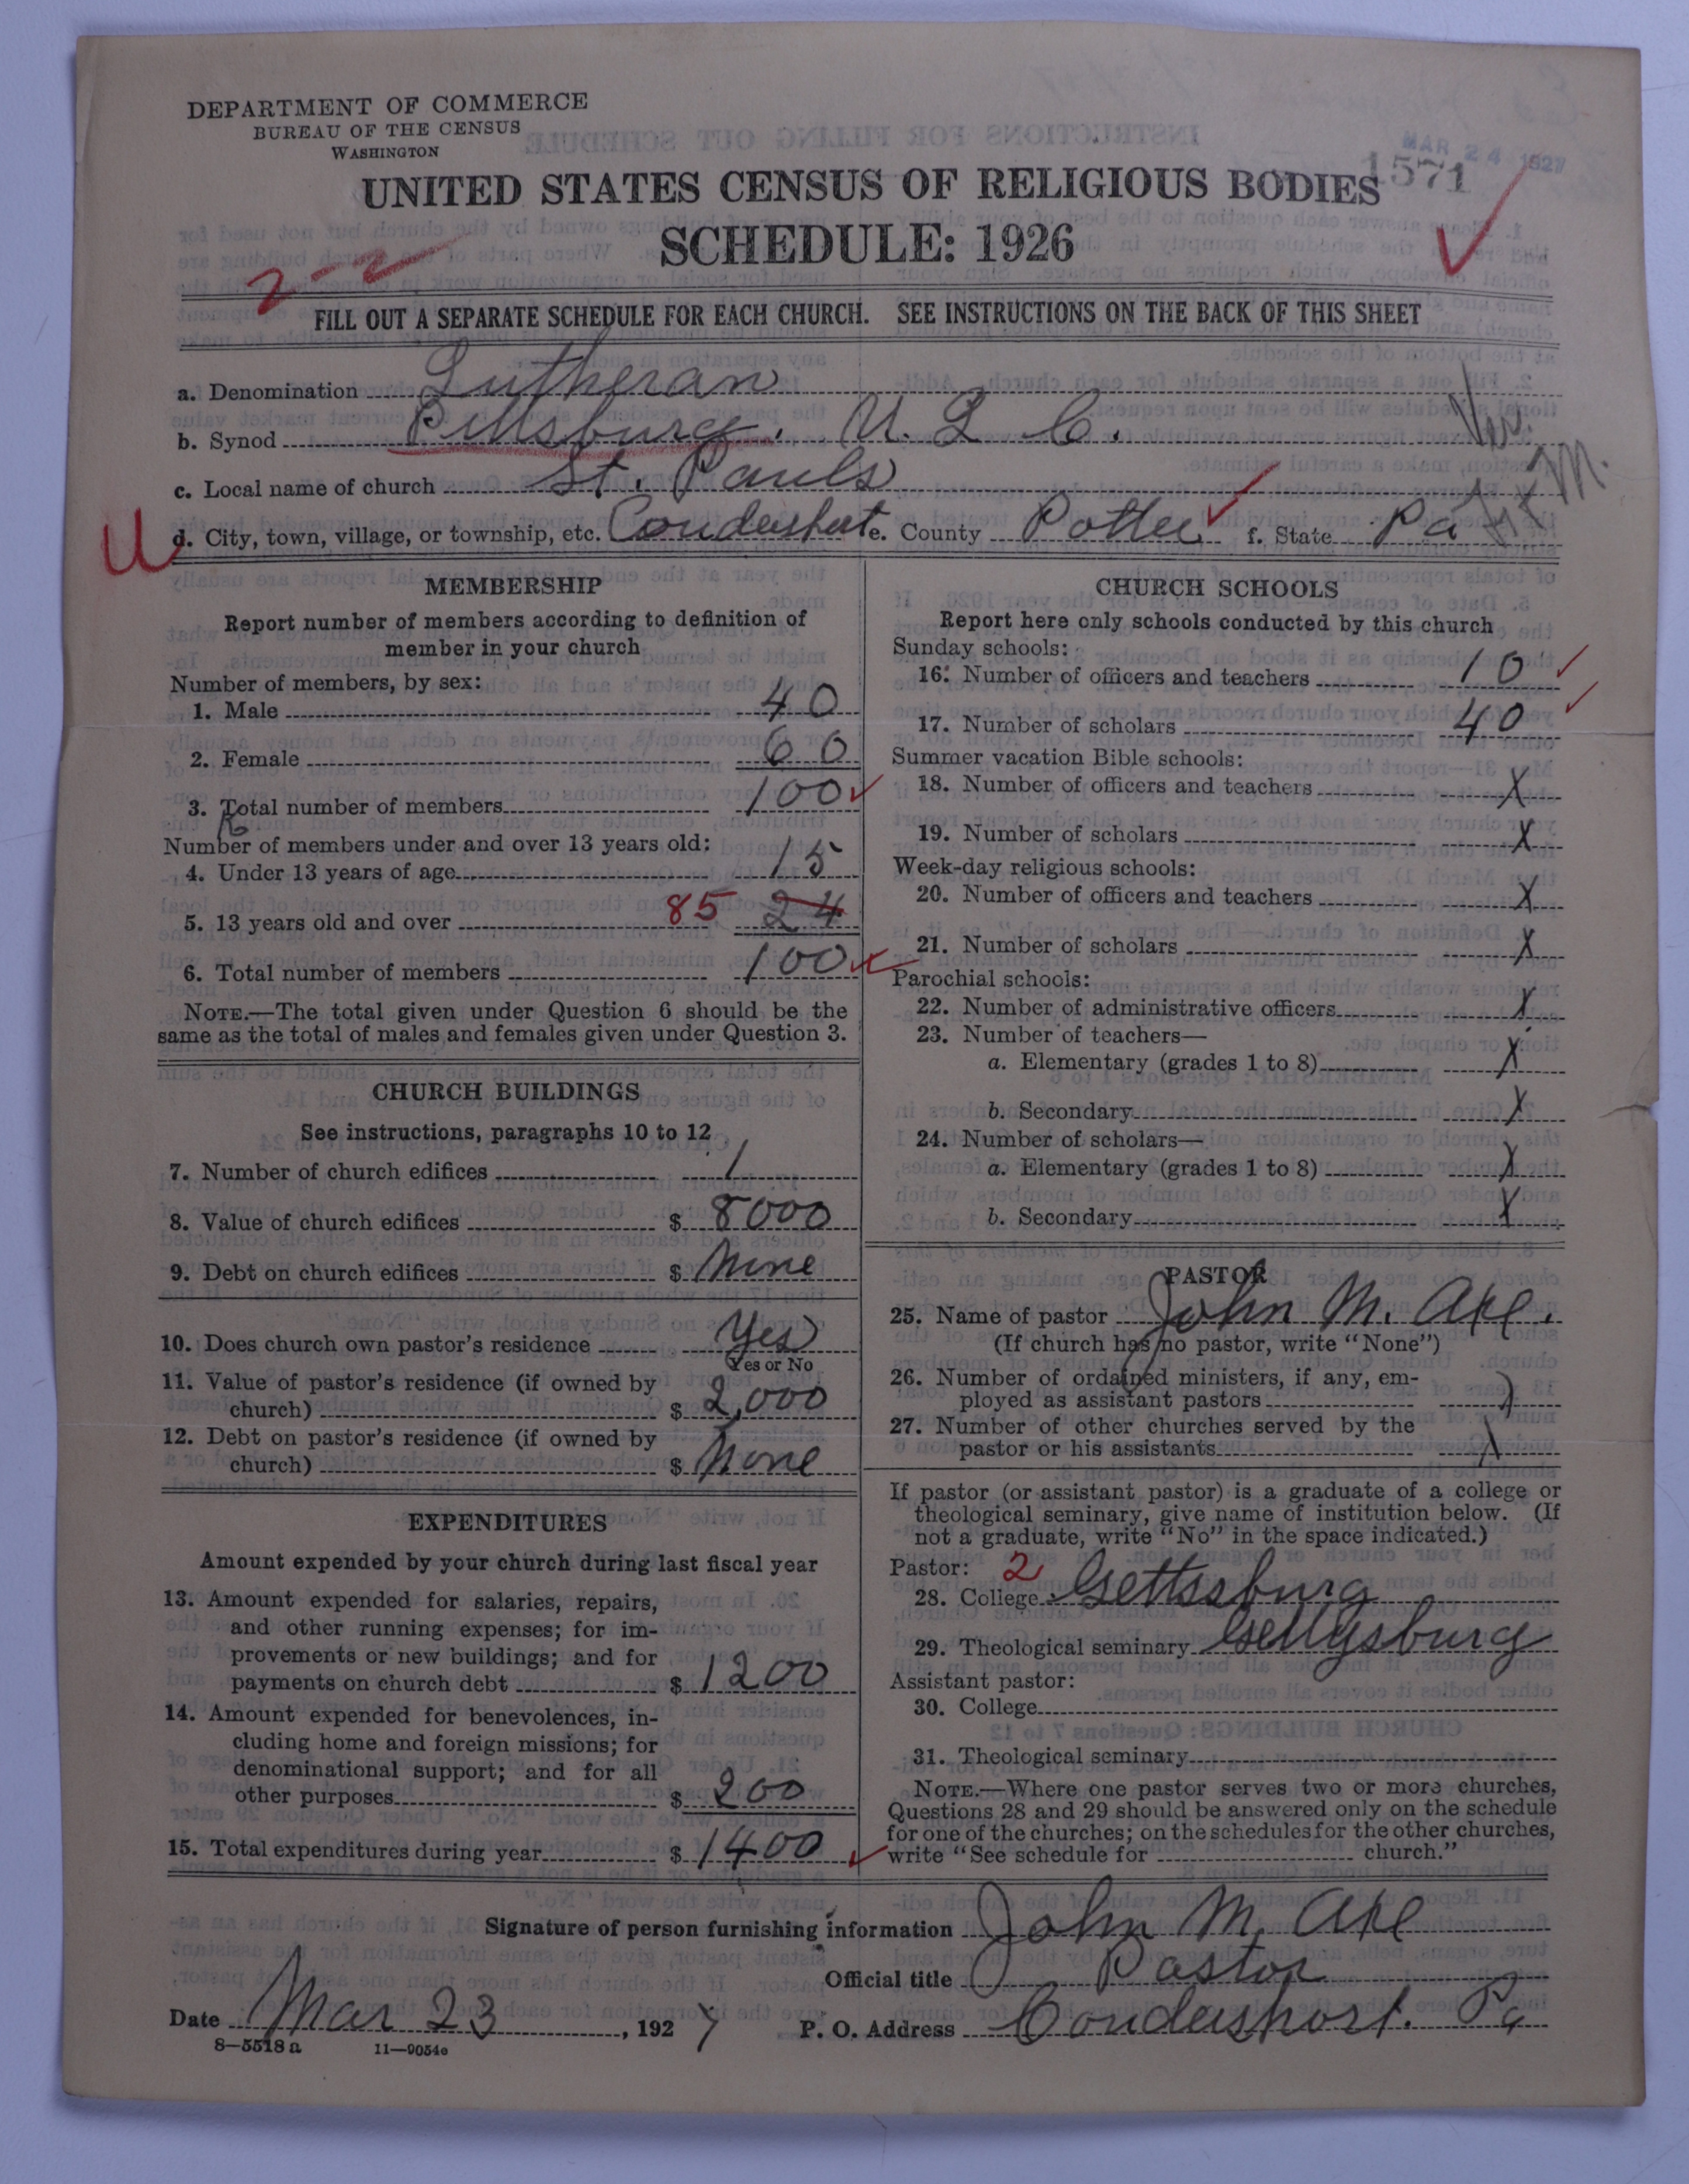 DEPARTMENT OF COMMERCE
BUREAU OF THE CENSUS
WASHINGTON
MAR 24 1927
1571
UNITED STATES CENSUS OF RELIGIOUS BODIES
SCHEDULE: 1926
2-2
FILL OUT A SEPARATE SCHEDULE FOR EACH CHURCH. SEE INSTRUCTIONS ON THE BACK OF THIS SHEET
a. Denomination Lutheran
b. Synod Pittsburg. U. L. C.
c. Local name of church St. Pauls
U
d. City, town, village, or township, etc. Coudersport e. County Potter f. State Pa
MEMBERSHIP
Report number of members according to definition of
member in your church
Number of members, by sex:
1. Male 40
2. Female 60
3. Total number of members 100
Number of members under and over 13 years old:
4. Under 13 years of age 15
5. 13 years old and over 85 24
6. Total number of members 100
NOTE.—The total given under Question 6 should be the
same as the total of males and females given under Question 3.
CHURCH BUILDINGS
See instructions, paragraphs 10 to 12
7. Number of church edifices 1
8. Value of church edifices $ 8000
9. Debt on church edifices $ None
10. Does church own pastor's residence Yes
Yes or No
11. Value of pastor's residence (if owned by
church) $ 2,000
12. Debt on pastor's residence (if owned by
church) $ None
EXPENDITURES
Amount expended by your church during last fiscal year
13. Amount expended for salaries, repairs,
and other running expenses; for im-
provements or new buildings; and for
payments on church debt $ 1200
14. Amount expended for benevolences, in-
cluding home and foreign missions; for
denominational support; and for all
other purposes $ 200
15. Total expenditures during year $ 1400
CHURCH SCHOOLS
Report here only schools conducted by this church
Sunday schools:
16. Number of officers and teachers 10
17. Number of scholars 40
Summer vacation Bible schools:
18. Number of officers and teachers X
19. Number of scholars X
Week-day religious schools:
20. Number of officers and teachers X
21. Number of scholars X
Parochial schools:
22. Number of administrative officers X
23. Number of teachers—
a. Elementary (grades 1 to 8) X
b. Secondary X
24. Number of scholars—
a. Elementary (grades 1 to 8) X
b. Secondary X
PASTOR
25. Name of pastor John M. Ake.
(If church has no pastor, write "None")
26. Number of ordained ministers, if any, em-
ployed as assistant pastors
27. Number of other churches served by the
pastor or his assistants
If pastor (or assistant pastor) is a graduate of a college or
theological seminary, give name of institution below. (If
not a graduate, write "No" in the space indicated.)
Pastor: 2
28. College Gettssburg
29. Theological seminary Gettysburg
Assistant pastor:
30. College
31. Theological seminary
NOTE.—Where one pastor serves two or more churches,
Questions 28 and 29 should be answered only on the schedule
for one of the churches; on the schedules for the other churches,
write "See schedule for church."
Signature of person furnishing information John M. Ake
Official title Pastor
Date Mar 23, 1927 P. O. Address Coudersport. Pa
8—5518 a 11—9054e